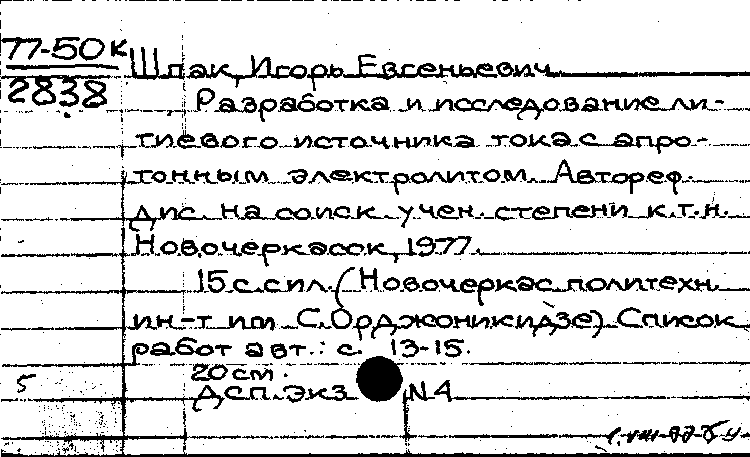 77-50к
2838
Шпак, Игорь Евгеньевич
Разработка и исследование ли-
тиевого источника тока с апро-
тонным электролитом. Автореф.
дис. на соиск. учен. степени к.т.н.
Новочеркасск, 1977.
15 с. с ил. (Новочеркас. политехн.
ин-т им. С. Орджоникидзе) Список
работ авт.: с. 13-15.
20 см.
5
ДСП. Экз N 4